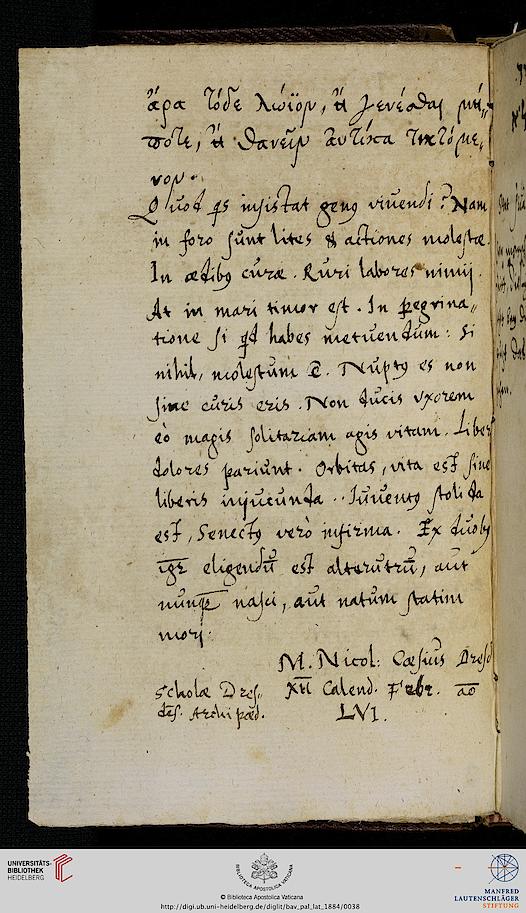 ἄρα τόδε λώϊον, ἢ γενέσθαι μή„
ποτε, ἢ θανεῖν αὐτίκα τικτόμε„
νον.
Quod q̃s insistat genꝰ viuendi? Nam
in foro sunt lites & actiones molestæ.
In ædibꝰ curæ. Ruri labores nimij.
At in mari timor est. In ꝑegrina„
tione si qd habes metuendum: Si
nihil, molestum ē. Nuptꝰ es non
sine curis eris. Non ducis vxorem
eò magis solitariam agis vitam. Liberi
dolores pariunt. Orbitas, vita est sine
liberis iniucunda. Iuuentꝰ stolida
est, Senectꝰ verò infirma. Ex duobꝰ
igr̄ eligendū est alterutrū, aut
nunq̄ nasci, aut natum statim
mori.
M. Nicol: Cæsius Dresd
Scholæ Dres„
XII Calend. Febr. aō
des. Archipæd.
LVI.
UNIVERSITÄTS-
BIBLIOTHEK
HEIDELBERG
BIBLIOTECA APOSTOLICA VATICANA
© Biblioteca Apostolica Vaticana
http://digi.ub.uni-heidelberg.de/diglit/bav_pal_lat_1884/0038
MANFRED
LAUTENSCHLÄGER
STIFTUNG